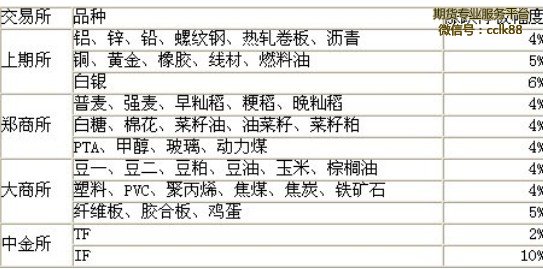 交易所 品种 幅度
期货专业服务平台
微信号：cclk88
上期所 铝、锌、铅、螺纹钢、热轧卷板、沥青 4%
铜、黄金、橡胶、线材、燃料油 5%
白银 6%
郑商所 普麦、强麦、早籼稻、粳稻、晚籼稻 4%
白糖、棉花、菜籽油、油菜籽、菜籽粕 4%
PTA、甲醇、玻璃、动力煤 4%
大商所 豆一、豆二、豆粕、豆油、玉米、棕榈油 4%
塑料、PVC、聚丙烯、焦煤、焦炭、铁矿石 4%
纤维板、胶合板、鸡蛋 5%
中金所 TF 2%
IF 10%